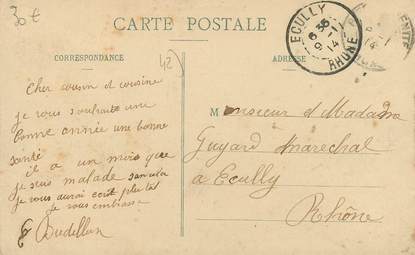 30€
CARTE POSTALE
CORRESPONDANCE
42
ADRESSE
ECULLY
6 35
9 -1
14
RHONE
Cher cousin et cousine
je vous souhaite une
bonne année une bonne
santé
il a un mois que
je suis malade sans cela
je vous aurai ecrit plus tot
je vous embrasse
Monsieur et Madame
Guyard Marechal
a Ecully
Rhône